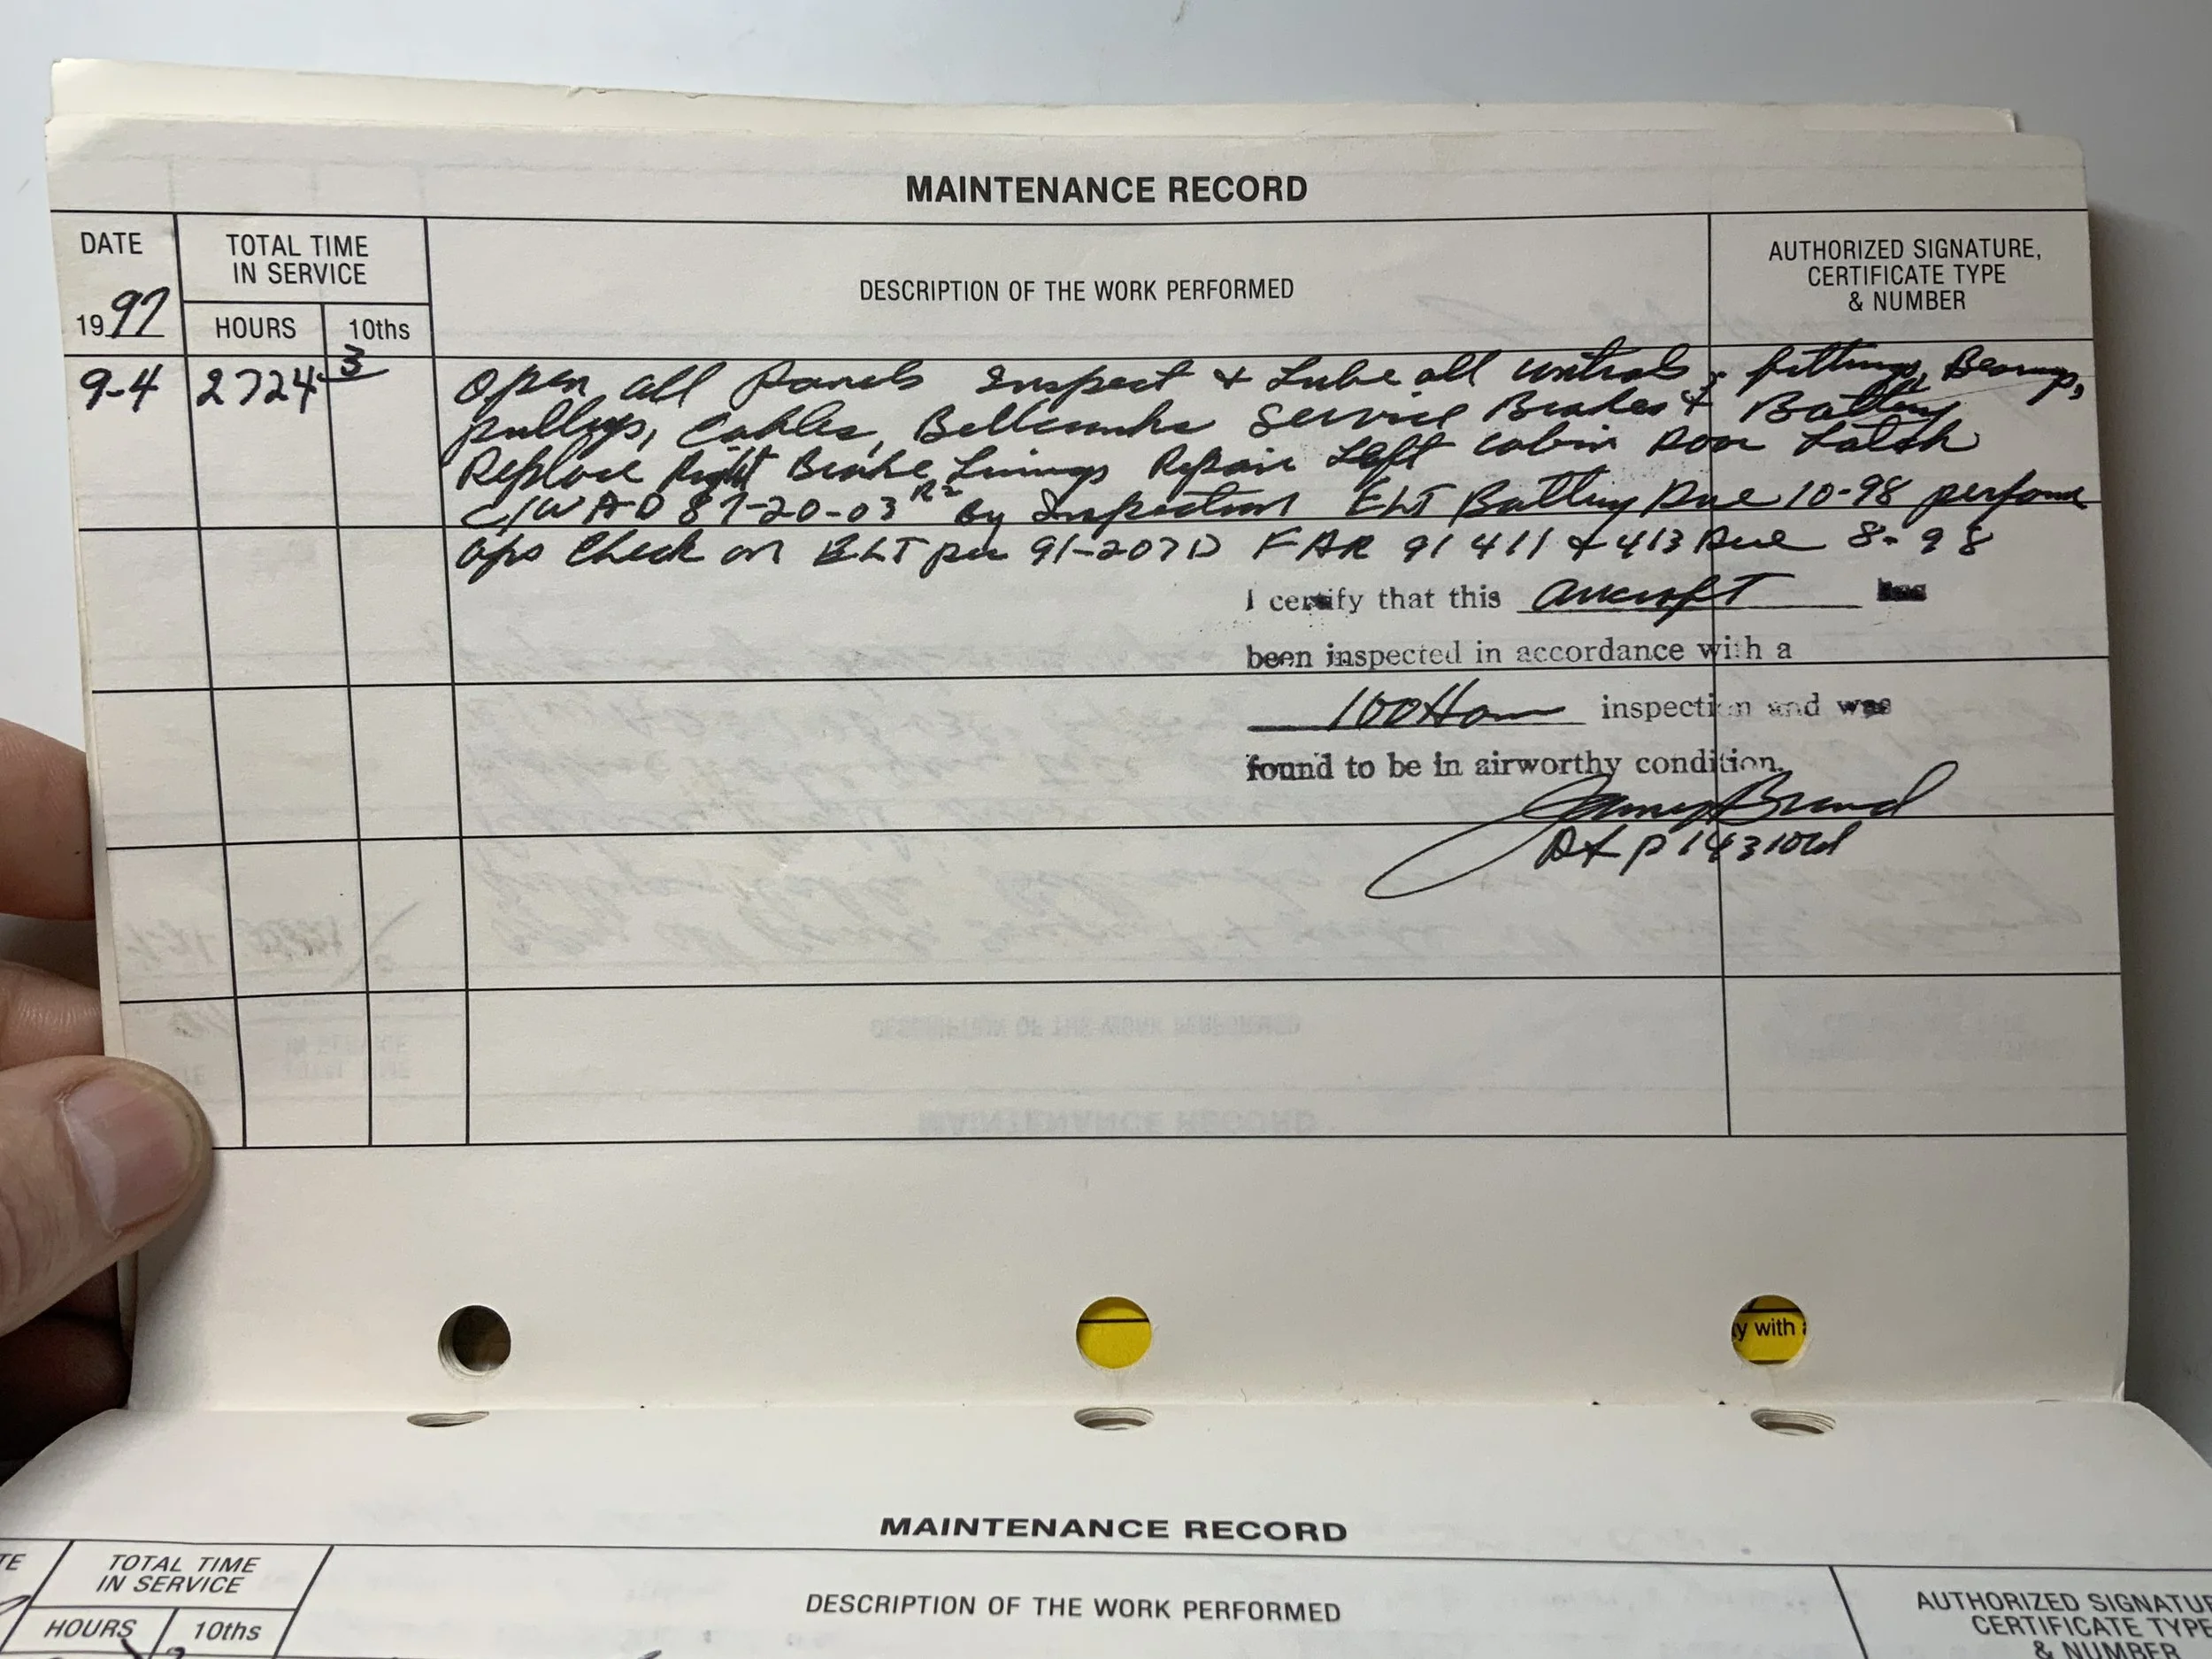 MAINTENANCE RECORD
DATE
TOTAL TIME
IN SERVICE
DESCRIPTION OF THE WORK PERFORMED
AUTHORIZED SIGNATURE,
CERTIFICATE TYPE
& NUMBER
1997
HOURS
10ths
9-4 2724 3 Open all Panels Inspect & Lube all controls, fittings, Bearings,
pulleys, Cables, Bellcranks Service Brakes & Battery
Replace Right Brake Linings Repair Left cabin Door Latch
C/W A-D 87-20-03 R2 By Inspection ELT Battery Due 10-98 perform
Ops Check on ELT per 91-207D FAR 91 411 & 413 Due 8-98
I certify that this aircraft has
been inspected in accordance with a
100 Hour inspection and was
found to be in airworthy condition.
y with
MAINTENANCE RECORD
TE
TOTAL TIME
IN SERVICE
DESCRIPTION OF THE WORK PERFORMED
AUTHORIZED SIGNATUR
CERTIFICATE TYPE
& NUMBER
HOURS
10ths